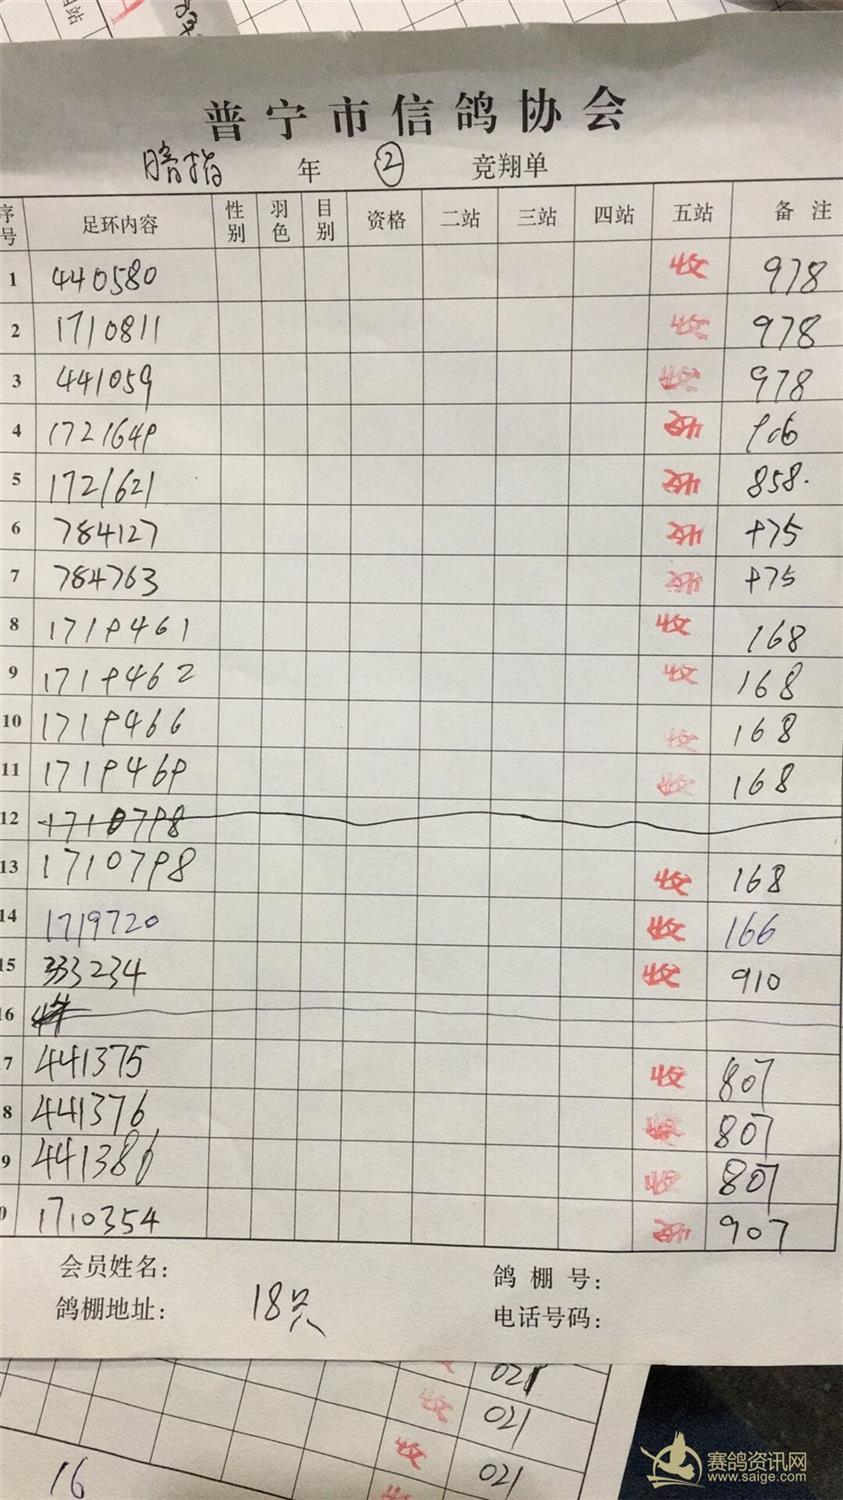 普宁市信鸽协会
暗指 年 ② 竞翔单
序号 足环内容 性别 羽色 目别 资格 二站 三站 四站 五站 备注
1 440580 收 978
2 1710811 收 978
3 441059 收 978
4 1721649 收 906
5 1721621 收 858.
6 784127 收 +75
7 784763 收 +75
8 1719461 收 168
9 1719462 收 168
10 1719466 收 168
11 1719469 收 168
12 1710798
13 1710798 收 168
14 1719720 收 166
15 333234 收 910
16
7 441375 收 807
8 441376 收 807
9 441386 收 807
0 1710354 收 907
会员姓名： 鸽棚号：
鸽棚地址： 18只 电话号码：
021
收 021
收 021
16 收
赛鸽资讯网
www.saige.com